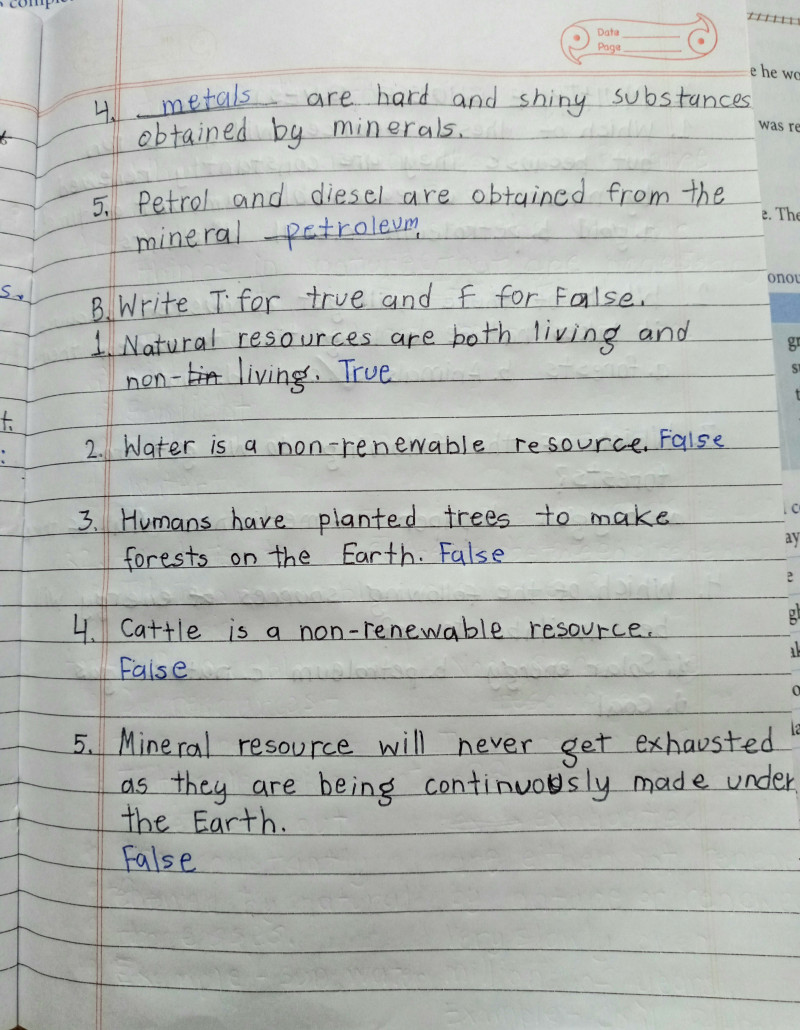 Date
Page
4. metals are hard and shiny substances
obtained by minerals.
5. Petrol and diesel are obtained from the
mineral petroleum.
B. Write T for true and F for False.
1. Natural resources are both living and
non-living. True
2. Water is a non-renewable resource. False
3. Humans have planted trees to make
forests on the Earth. False
4. Cattle is a non-renewable resource.
False
5. Mineral resource will never get exhausted
as they are being continuously made under
the Earth.
False
e he wo
was re
e. The